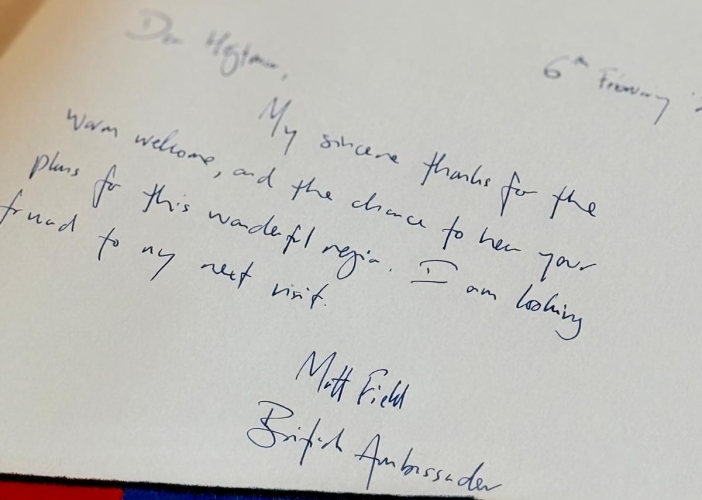 Dear Hejtman,
6th February
My sincere thanks for the
warm welcome, and the chance to hear your
plans for this wonderful region. I am looking
forward to my next visit.
Matt Field
British Ambassador